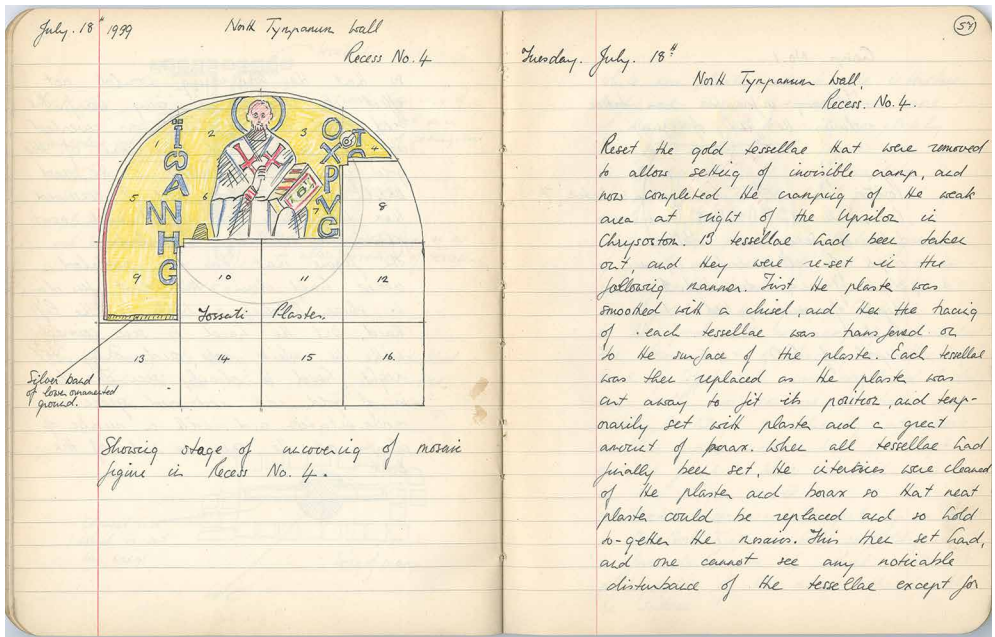 July. 18" 1939
North Tympanum Wall
Recess No. 4
Ϊ
Ѡ
Α
Ν
Ν
Η
C
Ο
Χ
Ρ
V
C
1
2
3
4
5
6
7
8
9
10
11
12
Fossati Plaster.
13
14
15
16.
Silver band
of lower ornamented
ground.
Showing stage of uncovering of mosaic
figure in Recess No. 4.
57
Tuesday. July. 18"
North Tympanum Wall.
Recess. No. 4.
Reset the gold tessellae that were removed
to allow setting of invisible cramp, and
now completed the cramping of the weak
area at right of the Upsilon in
Chrysostom. 13 tessellae had been taken
out, and they were re-set in the
following manner. First the plaster was
smoothed with a chisel, and then the tracing
of each tessellae was transfered on
to the surface of the plaster. Each tessellae
was then replaced as the plaster was
cut away to fit its position, and temp-
orarily set with plaster and a great
amount of borax. When all tessellae had
finally been set, the interstices were cleaned
of the plaster and borax so that neat
plaster could be replaced and so hold
to-gether the mosaics. This then set hard,
and one cannot see any noticable
disturbance of the tessellae except for